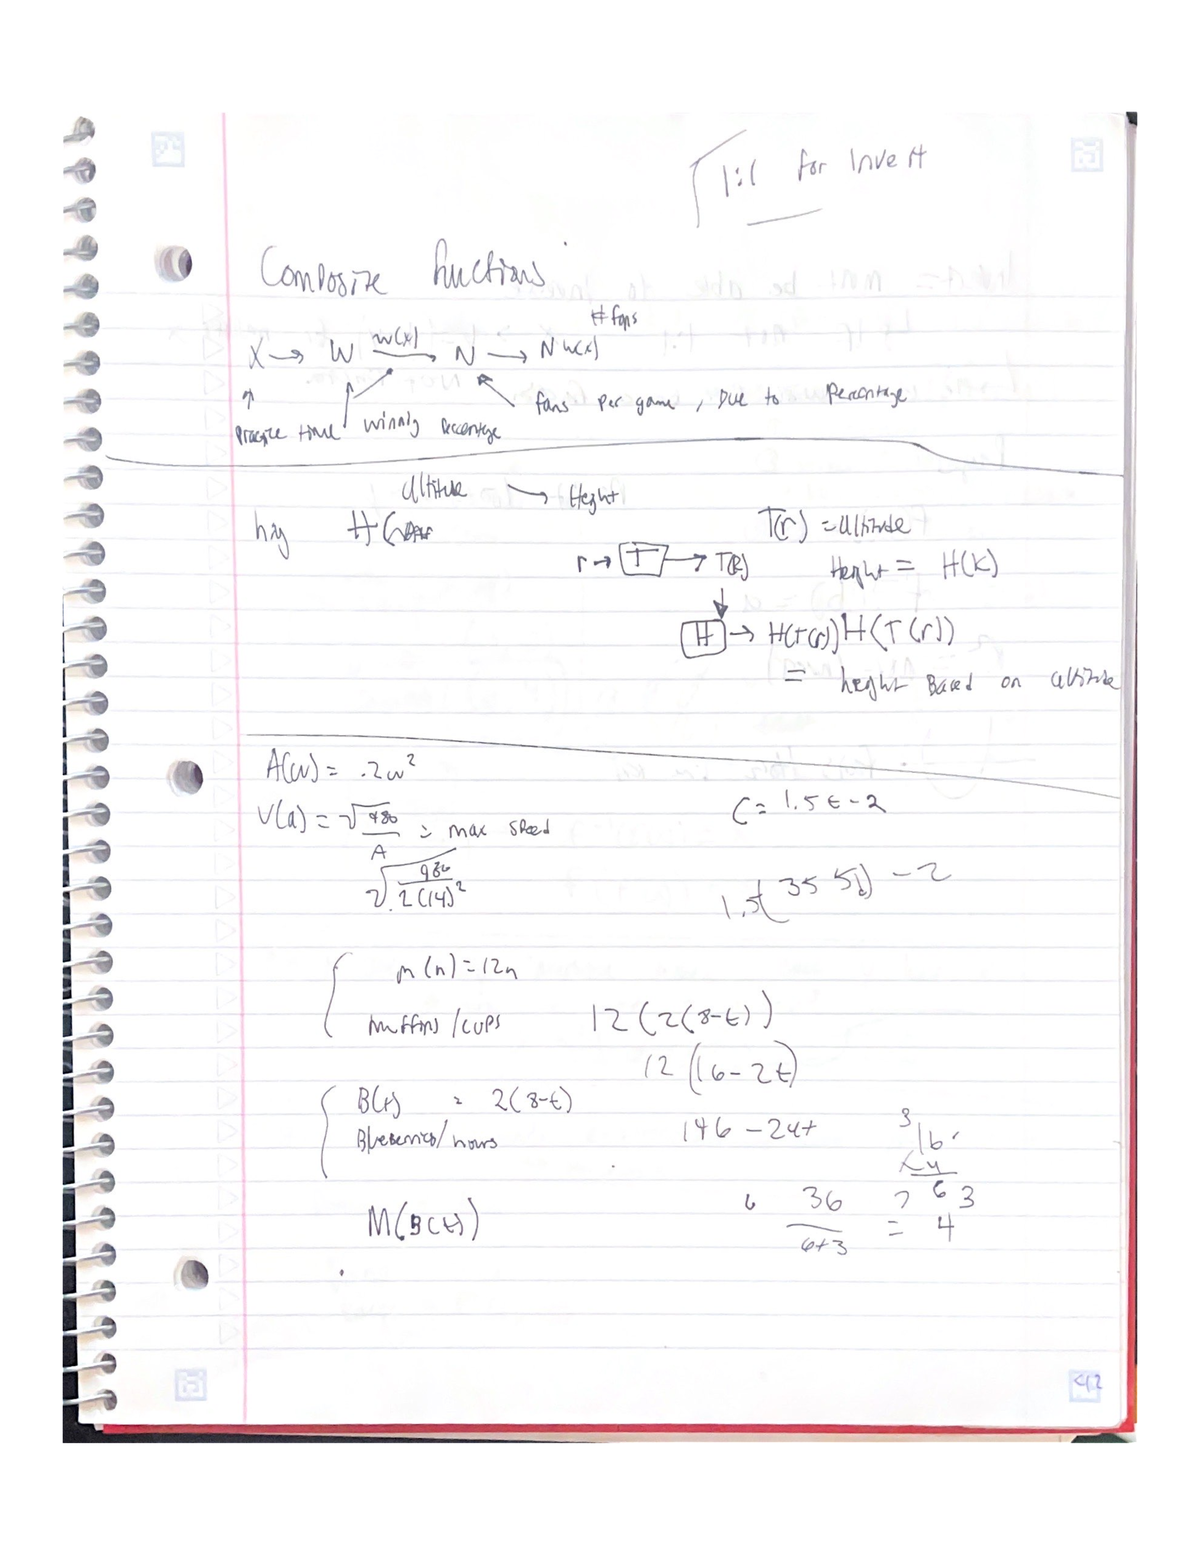 1:1 for Invert
Composite functions
# fans
X → W w(x) → N → N w(x)
fans per game, Due to Percentage
Practice time winning percentage
altitude → Height
H(
T(r) = altitude
r → T → T(R)
Height = H(K)
H → H(T(r)) H(T(r))
= height Based on altitude
A(w) = .2w²
C = 1.5t - 2
V(a) = √ 986 / A = max speed
√ 986 / .2(14)²
1.5( 35 5t) - 2
m(n) = 12n
muffins / cups
12(2(8-t))
12(16-2t)
B(t) = 2(8-t)
Blueberries / hours
146 - 24t
3
16
x 4
6 36 63
6+3 = 4
M(B(t))